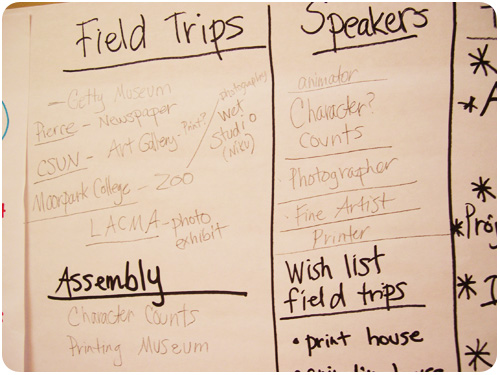 Field Trips
- Getty Museum
Pierce - Newspaper
CSUN - Art Gallery - Print?
photography
Wet
Studio
(Niku)
Moorpark College - Zoo
LACMA - photo
exhibit
Assembly
Character Counts
Printing Museum
Speakers
animator
Character?
Counts
· Photographer
· Fine Artist
Printer
Wish list
field trips
• print house